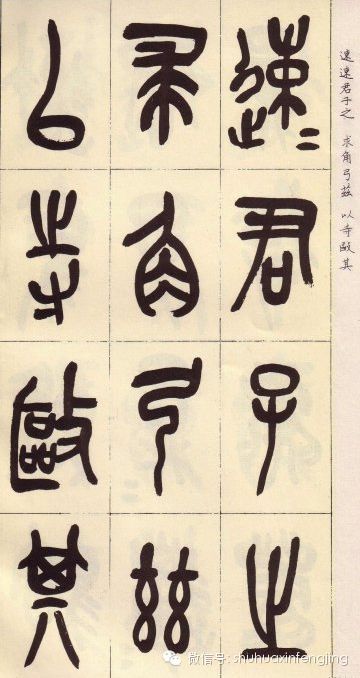 速速君子之 求角弓茲 以寺敺其
速〓君子之
求角弓茲
以寺敺其
微信号: shuhuaxinfengjing